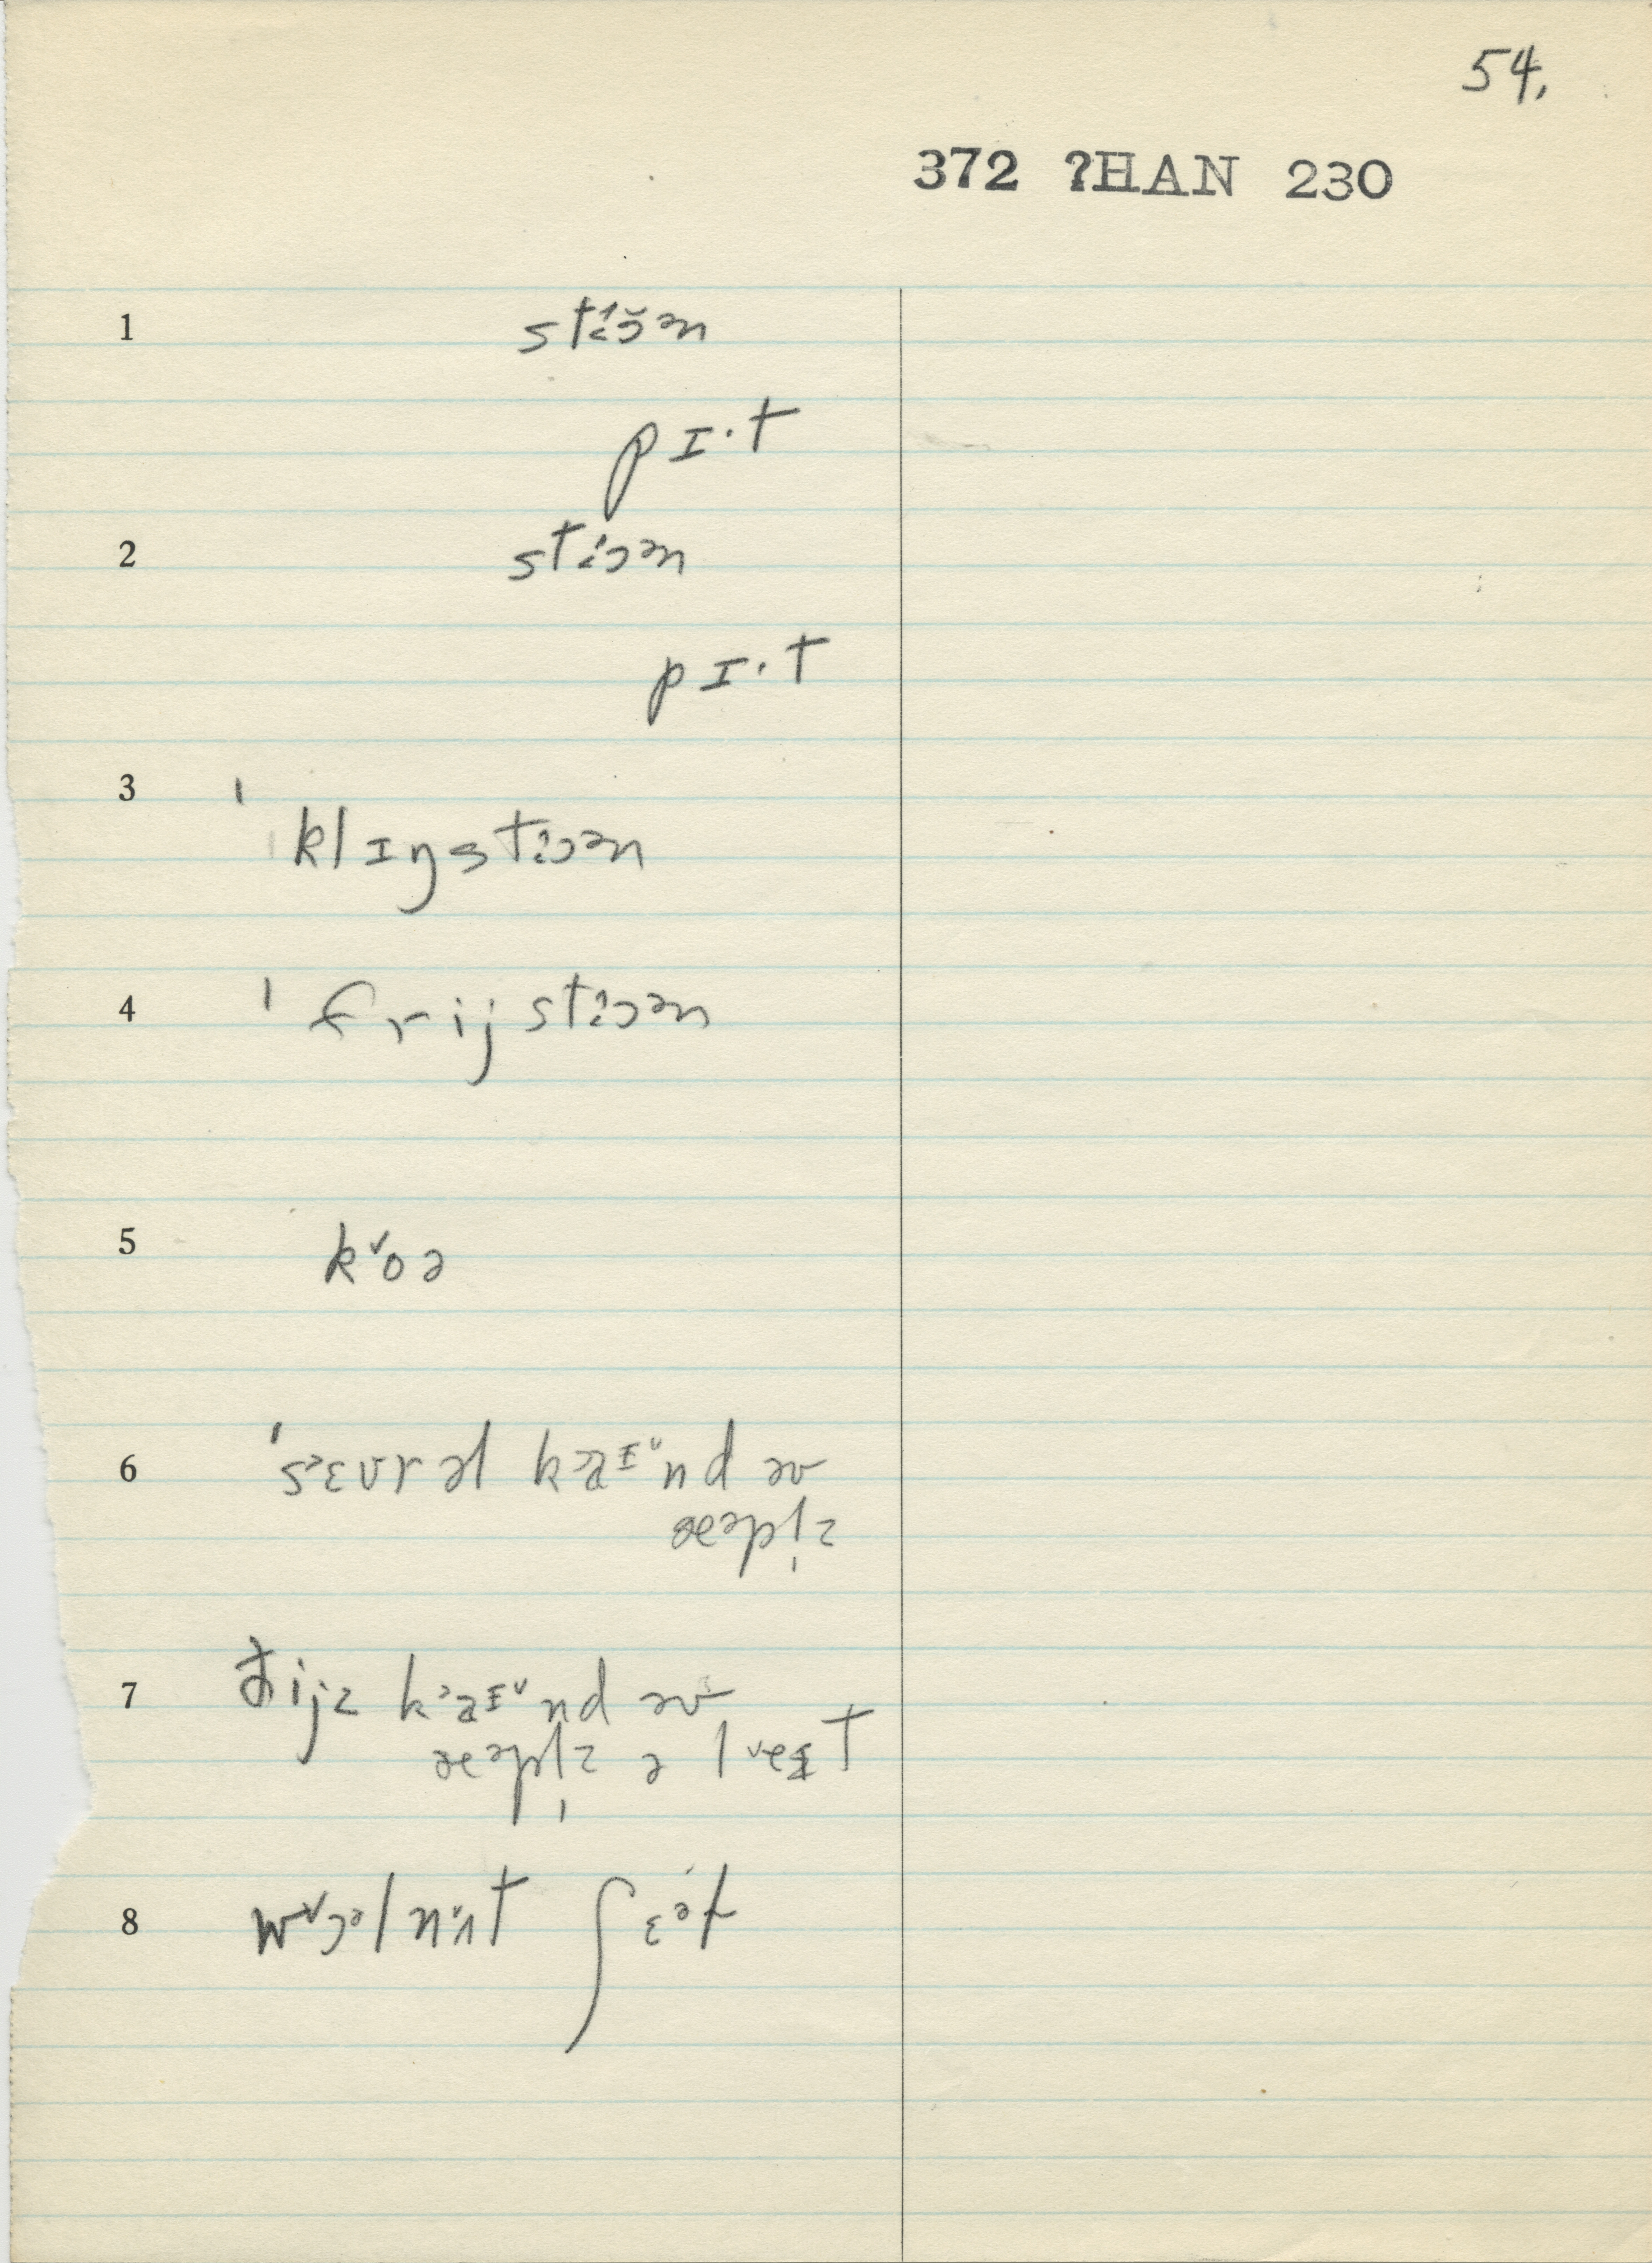 54.
372 ?HAN 230
1 stíɔ̆ən
pɪ·t
2 stíɔən
pɪ·t
3 ˈklɪŋstiɔən
4 ˈfrijstiɔən
5 k˅oə
6 ˈs˒ɛvrəl k˒aɪ˅nd əv
æəpl̩z
7 đijz k˒aɪ˅nd əv
æəpl̩z ə l˅eɪt
8 w˅ɔəl n˅ʌt ʃɛəɫ